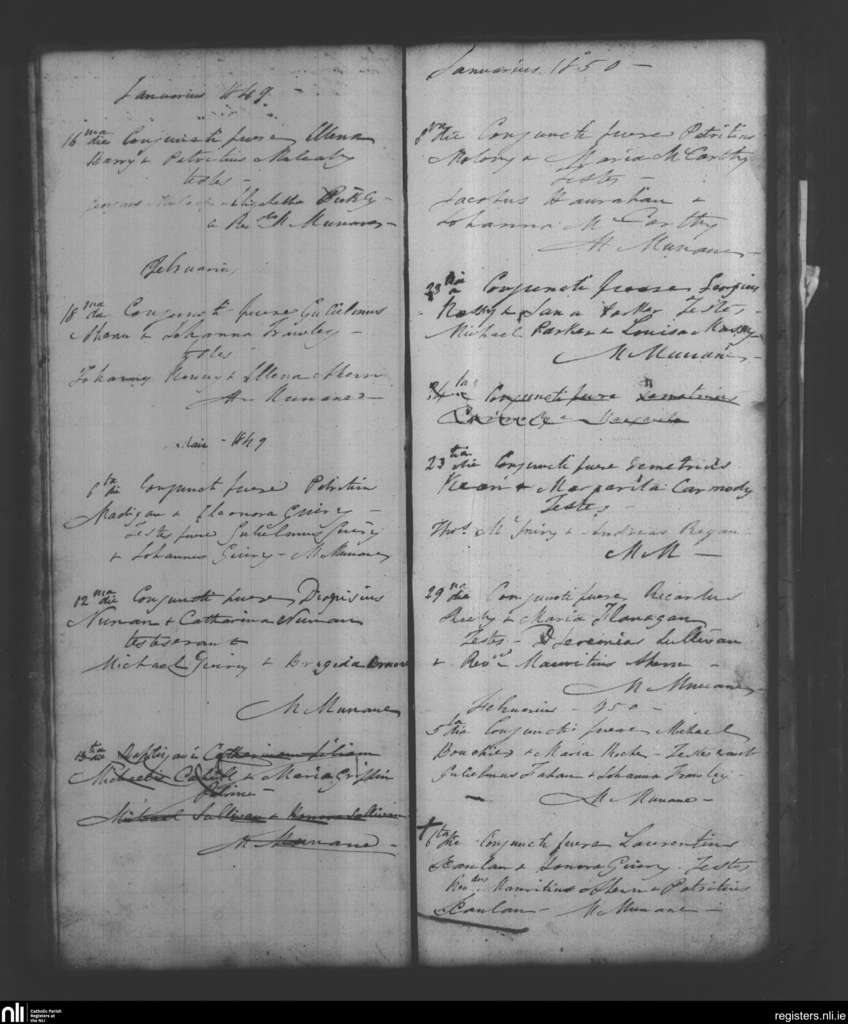 Januarius 1849 -
16 ma die Conjuncti fuere Ellena
Barry & Patritius Mulcahy
testes -
Elizabetha
& Revd M Munane -
Februarii
18 ma die Conjuncti fuere Gulielmus
Ahern & Johanna Frawley -
testes
Johannes & Ellena Ahern
M Munane -
Maii - 1849
6 ta die Conjuncti fuere Patritius
Madigan & Eleonora Guiry -
Testes fuere Gulielmus Guiry
& Johannes Guiry - M Munane
12 ma die Conjuncti fuere Dionisius
Nunan & Catharina Nunan
testes erant
Michael Guiry & Brigida
M Munane
13 ta die Baptizavi Catherinam filiam
Michaelis & Maria Griffin
Patrini -
Michael Sullivan & Honora Sullivan
M Munane -
Januarius 1850 -
8 va die Conjuncti fuere Patritius
Molony & Maria McCarthy
Testes -
Jacobus Hanrahan &
Johanna McCarthy
M Munane -
23 die Conjuncti fuere Georgius
Massy & Jana Parker Testes -
Michael Parker & Louisa Massy
M Munane -
24 ta Conjuncti fuere Demetrius
Margarita
23 tia die Conjuncti fuere Demetrius
Kean & Margarita Carmody
Testes
Thos. & Andreas Regan
M M -
29 na die Conjuncti fuere Ricardus
& Maria Flanagan
Testes - Jeremias Sullivan
& Revd Mauritius Ahern -
M Munane -
Februarius - 1850 -
5 ta die Conjuncti fuere Michael
& Maria Roche - Testes erant
Gulielmus Fahan & Johanna Frawley -
M Munane -
6 ta die Conjuncti fuere Laurentius
Scanlan & Honora Guiry. Testes
Revdus Mauritius Ahern & Patritius
Scanlan - M Munane -
nli
Catholic Parish
Registers at
the NLI
registers.nli.ie